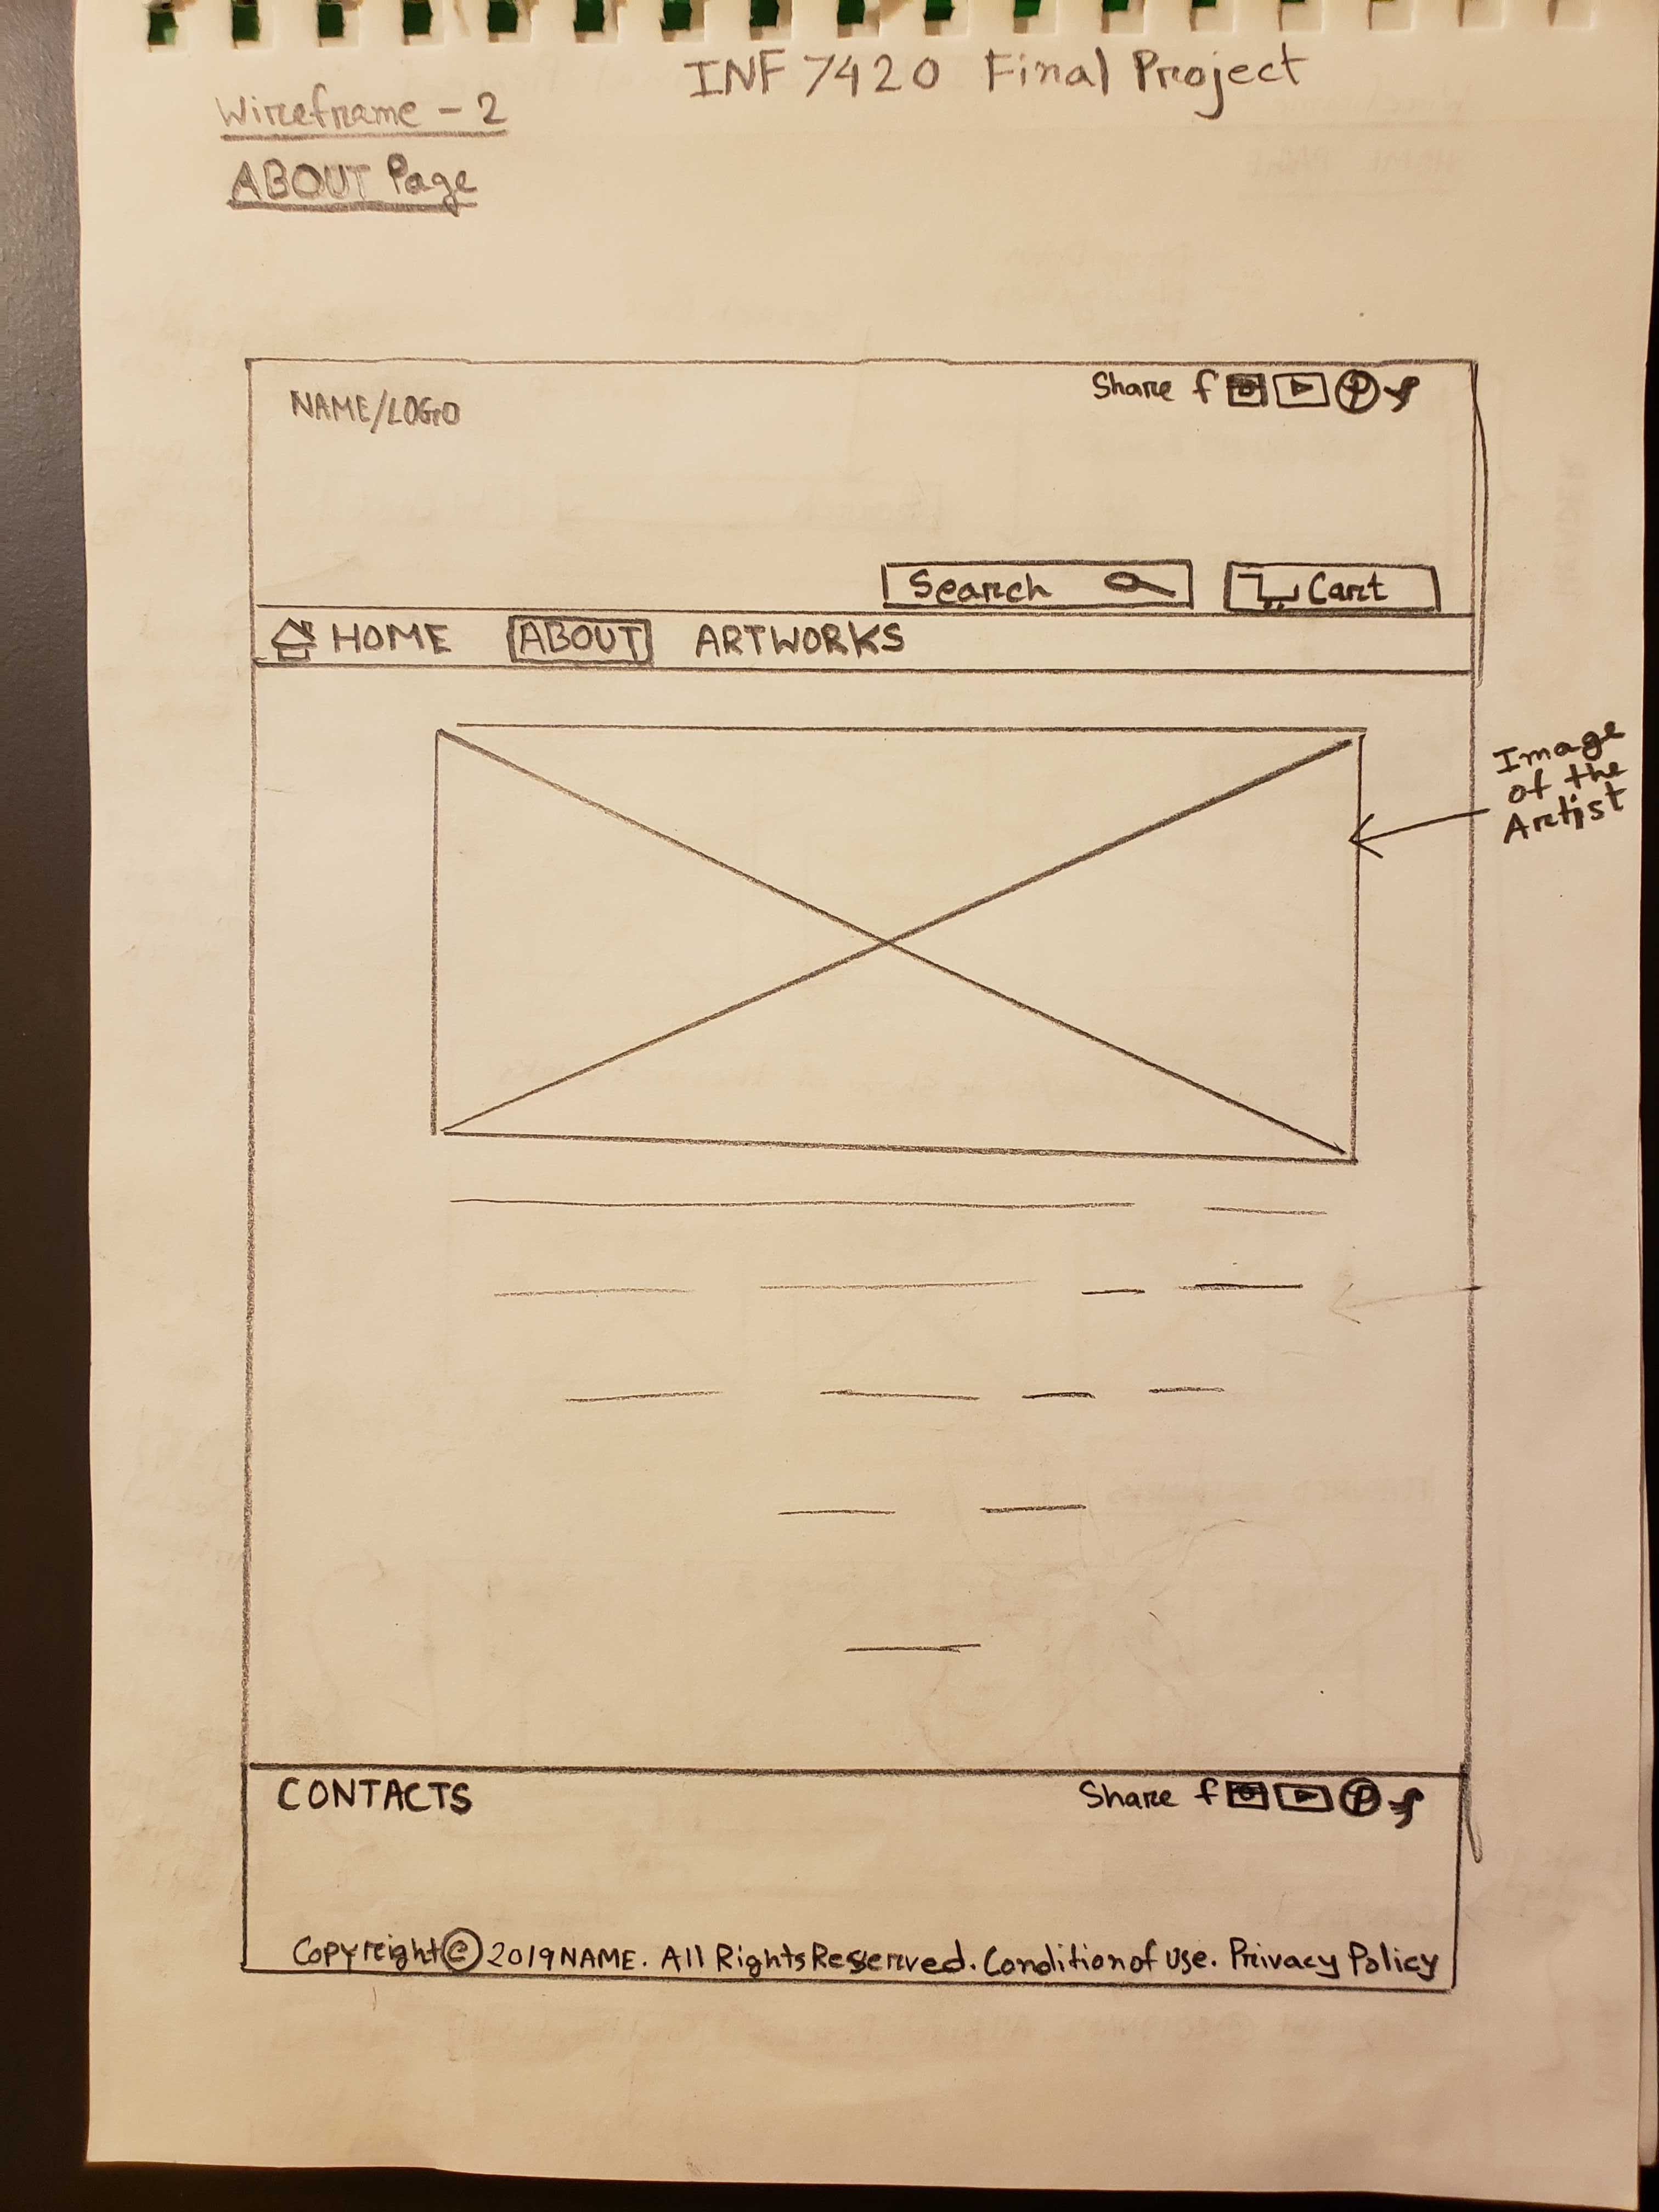 INF 7420 Final Project
Wireframe - 2
ABOUT Page
NAME/LOGO
Share f
Search
Cart
HOME ABOUT ARTWORKS
Image
of the
Artist
CONTACTS
Share f
Copyright © 2019 NAME. All Rights Reserved. Condition of Use. Privacy Policy